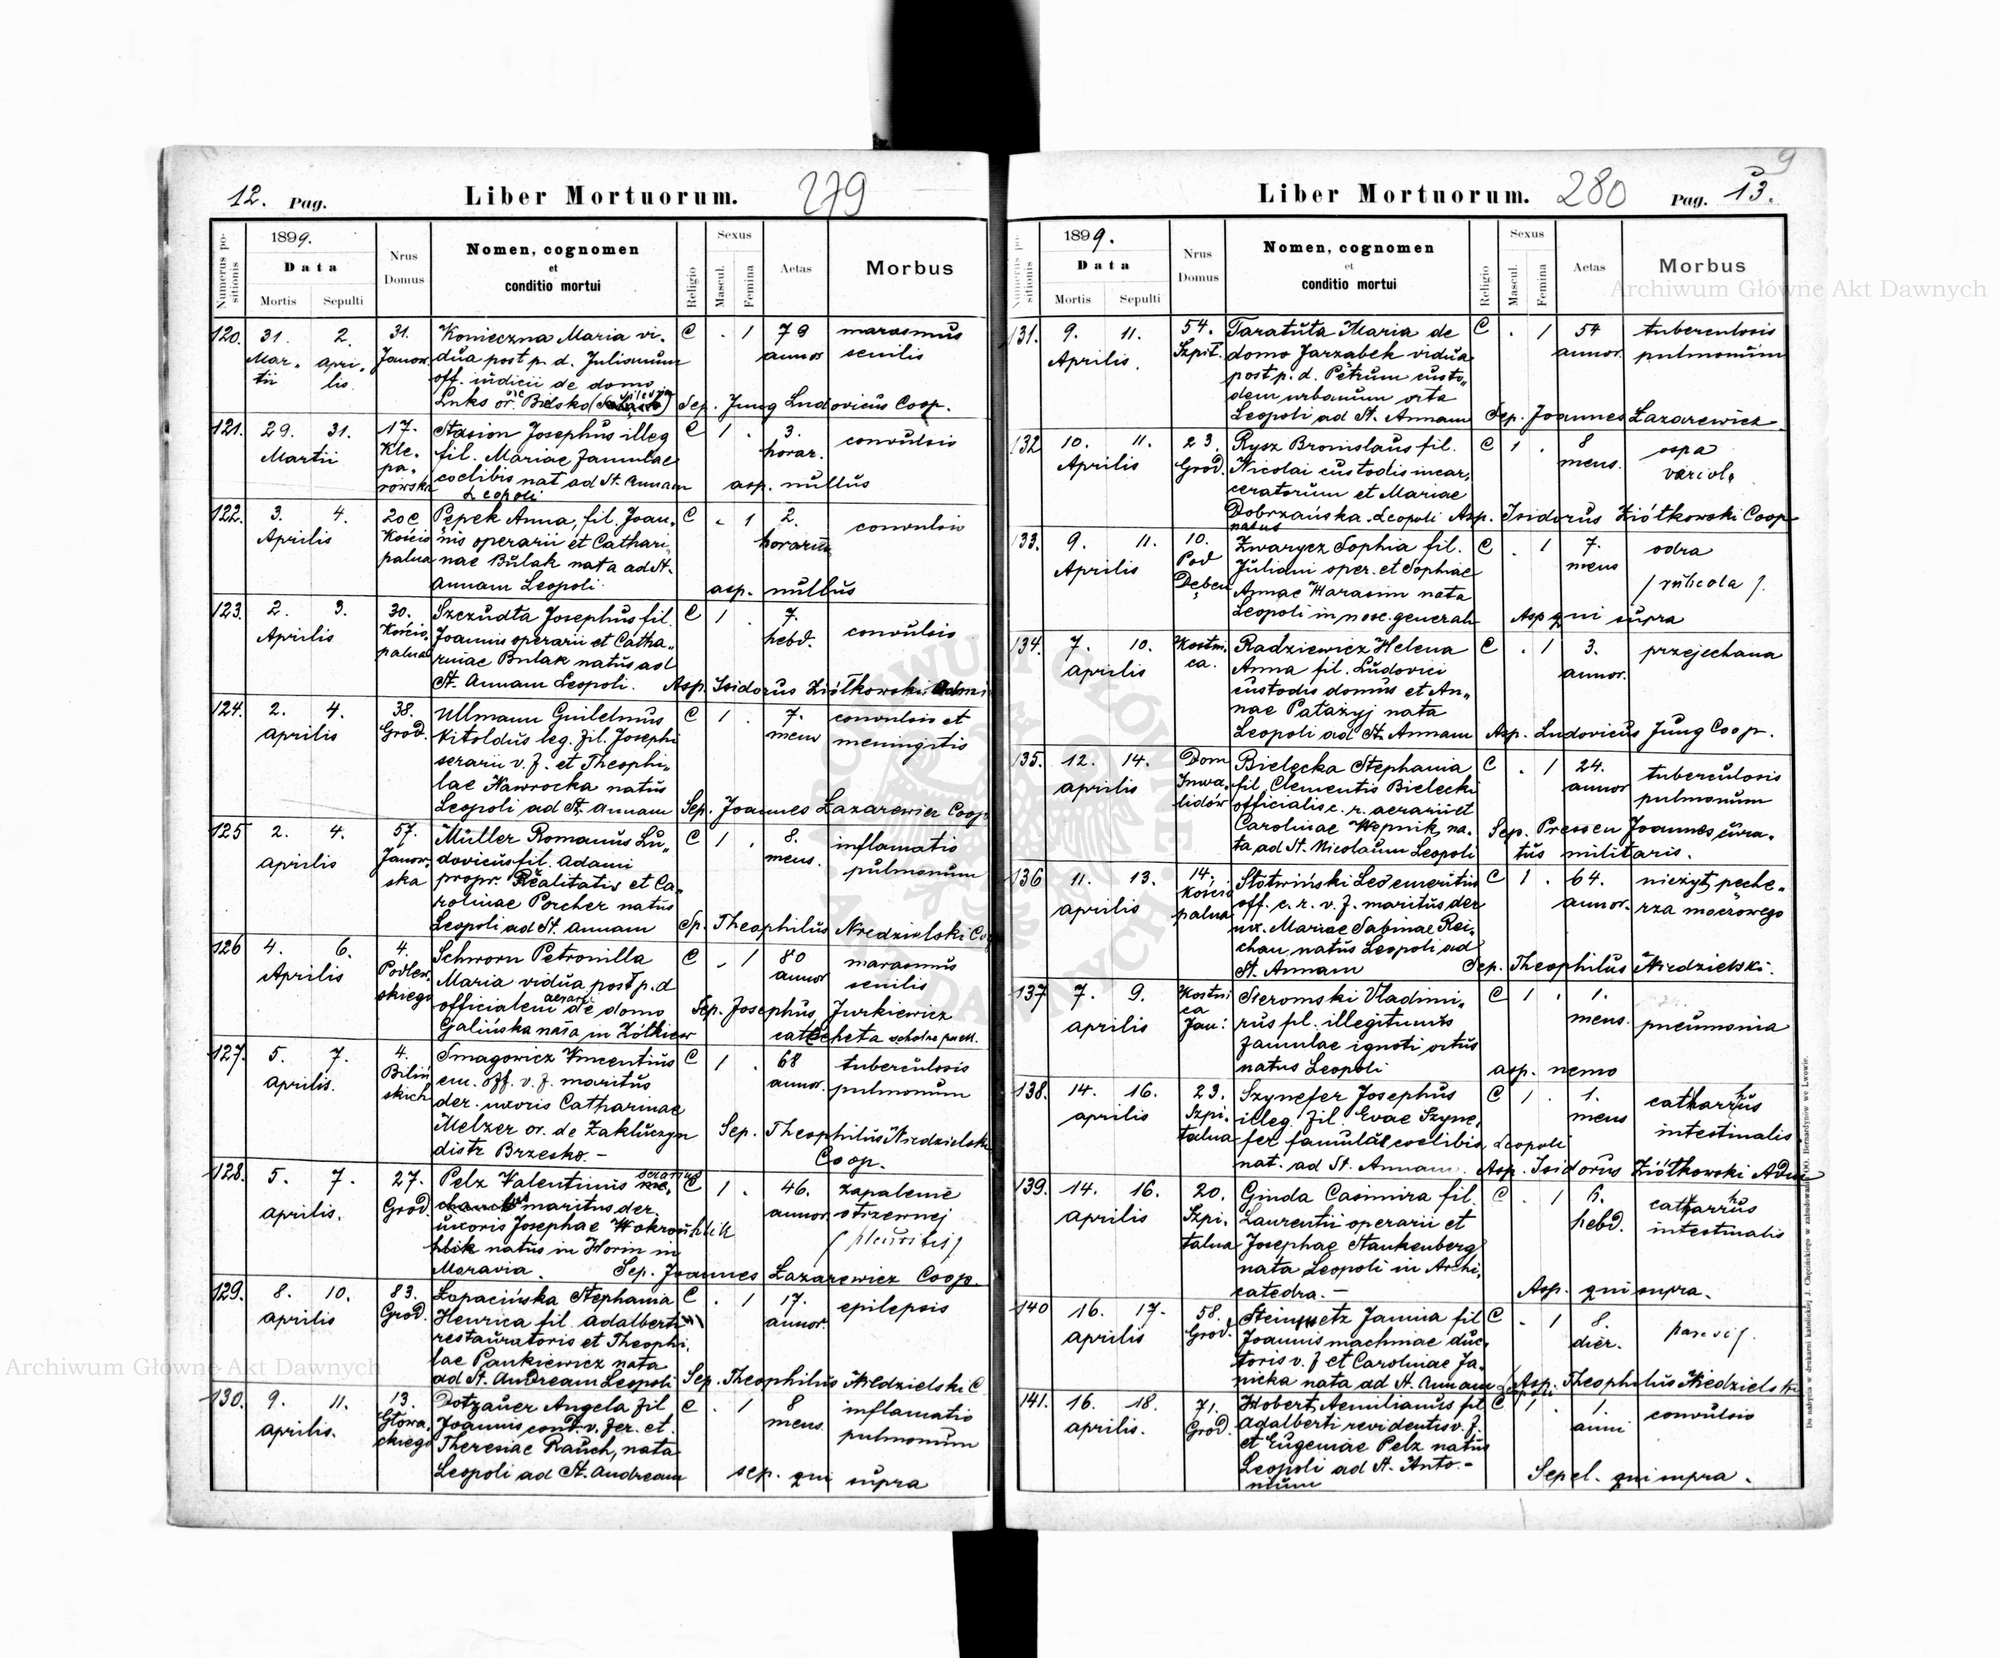 12. Pag.
Liber Mortuorum.
279
Numerus positionis
1899.
Data
Mortis
Sepulti
Nrus Domus
Nomen, cognomen
et
conditio mortui
Religio
Sexus
Mascul.
Femina
Aetas
Morbus
120. 31. 2. 31. Konieczna Maria vi- C . 1 79 marasmus
Mar- apri- Janow. dua post p. d. Julianum annor senilis
tii lis. off. iudicii de domo
Luks or. Bielsko Sep. Jung Ludovicus Coop.
121. 29. 31. 17. Stasion Josephus illeg C 1 . 3. convulsio
Martii Kle- fil. Mariae famulae horar.
pa- coelibis nat ad St. Annam asp. nullus
rowska Leopoli
122. 3. 4. 20c Pepek Anna, fil. Joan- C . 1 2. convulsio
Aprilis Kościo nis operarii et Cathari- horarum
palna nae Bulak nata ad St.
Annam Leopoli. asp. nullus
123. 2. 3. 30. Szczudła Josephus fil. C 1 7. convulsio
Aprilis Kościo. Joannis operarii et Catha- hebd.
palna rinae Bulak natus ad
St. Annam Leopoli. Asp. Isidorus Ziółkowski Admi
124. 2. 4. 38. Ullmann Guilelmus C 1 . 7. convulsio et
aprilis Grod. Vitoldus leg. fil. Josephi mens meningitis
serarii v. f. et Theophi-
lae Nawrocka natus
Leopoli ad St. Annam Sep. Joannes Łazarewicz Coop.
125 2. 4. 57. Müller Romanus Lu- C 1 . 8. inflamatio
aprilis Janow- dovicus fil. Adami mens. pulmonum
ska propr. Realitatis et Ca-
rolinae Porcher natus
Leopoli ad St. Annam Sp. Theophilus Niedzielski Co
126 4. 6. 4. Schworn Petronilla C . 1 80 marasmus
Aprilis Podlew- Maria vidua post p. d annor senilis
skiego officialem aerarii de domo Sep. Josephus Jurkiewicz
Galińska nata in Żółkiew catecheta scholae puell.
127. 5. 7. 4. Smagowicz Vincentius C 1 . 68 tuberculosis
aprilis. Biliń em. off. v. f. maritus annor. pulmonum
skich der. uxoris Catharinae
Melzer or. de Zakluczyn Sep. Theophilus Niedzielski
distr Brzesko. - Coop.
128. 5. 7. 27. Pelz Valentinus C 1 . 46. zapalenie
aprilis. Grod. maritus der. annor. otrzewnej
uxoris Josephae
natus in Horin in
Moravia. Sep. Joannes Łazarewicz Coop
129. 8. 10. 83. Łopacińska Stephania C . 1 17. epilepsis
aprilis Grod. Henrica fil. Adalberti annor.
restauratoris et Theophi-
lae Pankiewicz nata
ad St. Andream Leopoli Sep. Theophilus Niedzielski C
130. 9. 11. 13. Dotzauer Angela fil C . 1 8 inflamatio
aprilis. Głowa- Joannis cond. v. fer. et mens pulmonum
ckiego Theresiae Rauch, nata
Leopoli ad St. Andream sep. qui supra
9
Liber Mortuorum.
280
Pag. 13.
Numerus positionis
1899.
Data
Mortis
Sepulti
Nrus Domus
Nomen, cognomen
et
conditio mortui
Religio
Sexus
Mascul.
Femina
Aetas
Morbus
131. 9. 11. 54. Taratuta Maria de C . 1 54 tuberculosis
Aprilis. Szpit. domo Jarzabek vidua annor. pulmonum
post p. d. Petrum custo-
dem urbanum orta
Leopoli ad St. Annam Sep. Joannes Łazarewicz
132 10. 11. 23. Rysz Bronislaus fil. C 1 . 8 ospa
Aprilis Grod. Nicolai custodis incar- mens. variol.
ceratorum et Mariae
Dobrzańska. Leopoli Asp. Isidorus Ziółkowski Coop
natus
133. 9. 11. 10. Zwarycz Sophia fil. C . 1 7. odra
Aprilis Pod Juliani oper. et Sophiae mens / rubeola /.
Dębem Annae Harasim nata
Leopoli in nosc. generali Asp qui supra
134. 7. 10. Kostni- Radziewicz Helena C . 1 3. przejechana
aprilis ca. Anna fil. Ludovici annor.
custodis domus et An-
nae Patażyj nata
Leopoli ad St. Annam Asp. Ludovicus Jung Coop.
135. 12. 14. Dom Bielecka Stephania C . 1 24. tuberculosis
aprilis Inwa- fil. Clementis Bielecki annor pulmonum
lidów officialis c. r. aerarii et
Carolinae Wepnik, na- Sep. Pressen Joannes cura-
ta ad St. Nicolaum Leopoli tus militaris.
136 11. 13. 14. Słotwiński Leo emeritus C 1 . 64. nieżyt pęche-
aprilis Kościo off. c. r. v. f. maritus der annor. rza moczowego
palna ux. Mariae Sabinae Rei-
chan natus Leopoli ad
St. Annam Sep. Theophilus Niedzielski.
137 7. 9. Kostni Sieromski Vladimi- C 1 . 1. pneumonia
aprilis ca rus fil. illegitimus mens.
Jan: famulae ignoti ortus
natus Leopoli asp. nemo
138. 14. 16. 23. Szynefer Josephus C 1 . 1. catharrhus
aprilis Szpi- illeg. fil. Evae Szyne- mens intestinalis.
talna fer famulae coelibis Leopoli
nat. ad St. Annam. Asp. Isidorus Ziółkowski Adm
139. 14. 16. 20. Ginda Casimira fil. C . 1 6. catarrhus
aprilis Szpi- Laurentii operarii et hebd. intestinalis
talna Josephae Stankenberg
nata Leopoli in Archi-
catedra. - Asp. qui supra.
140 16. 17. 58. Steinmetz Janina fil C . 1 8.
aprilis Grod. Joannis machinae duc- dier.
toris v. f et Carolinae Ja-
nicka nata ad St. Annam Leopoli Asp. Theophilus Niedzielski
141. 16. 18. 71. Hobert Aemilianus fil C 1 . 1. convulsio
aprilis. Grod. Adalberti revidentis v. f. anni
et Eugeniae Pelz natus
Leopoli ad St. Anto-
nium Sepel. qui supra.
Do nabycia w drukarni katolickiej J. Chęcińskiego w zabudowaniu OO. Bernardynów we Lwowie.
Archiwum Główne Akt Dawnych
Archiwum Główne Akt Dawnych
ARCHIWUM GŁÓWNE AKT DAWNYCH